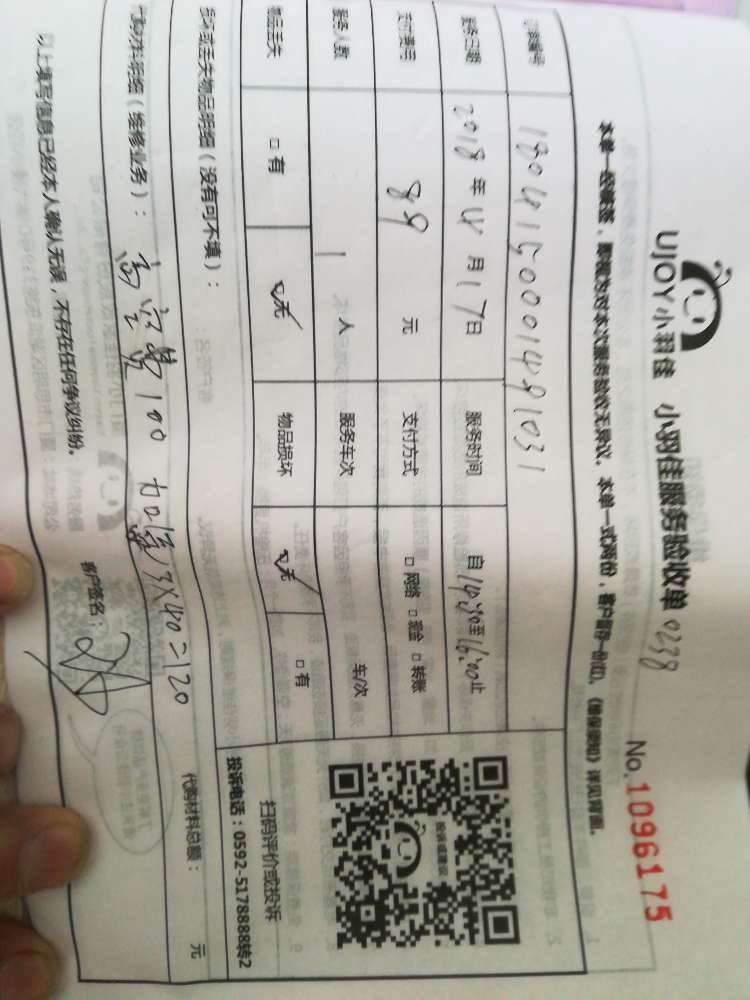 UJOY小羽佳 小羽佳服务验收单 0238
No.1096175
本单一经签签，即视为对本次服务验收无异议。本单一式两份，客户留存一份，《维保须知》详见背面。
订单编号 1804150001491031
服务日期 2018年4月17日 服务时间 自14:30至16:00止
支付费用 89 元 支付方式 □网络 □现金 □转账
服务人数 1 人 服务车次 车/次
物品丢失 □有 ☑无 物品损坏 ☑无 □有
投诉或建议
扫码评价或投诉
投诉电话：0592-5178888转2
损坏或丢失物品明细（没有可不填）：
代购材料明细（维修业务）： 高空费100 加氟 3X40=120
代购材料总额： 元
以上填写信息已经本人确认无误，不存在任何争议纠纷。 客户签名：